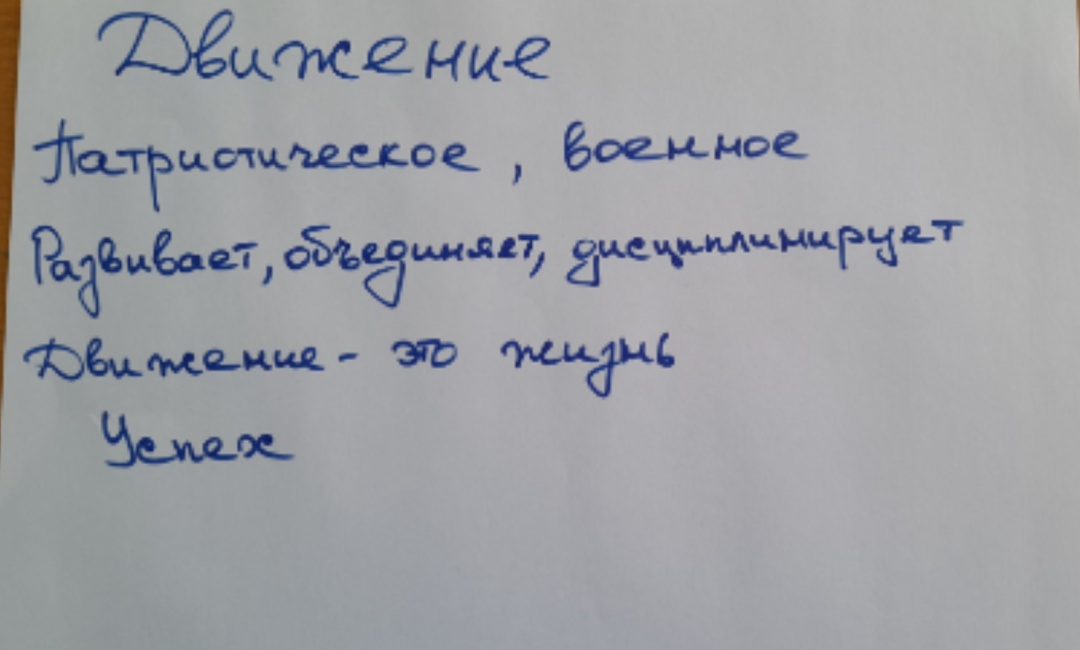 Движение
Патриотическое, военное
Развивает, объединяет, дисциплинирует
Движение - это жизнь
Успех